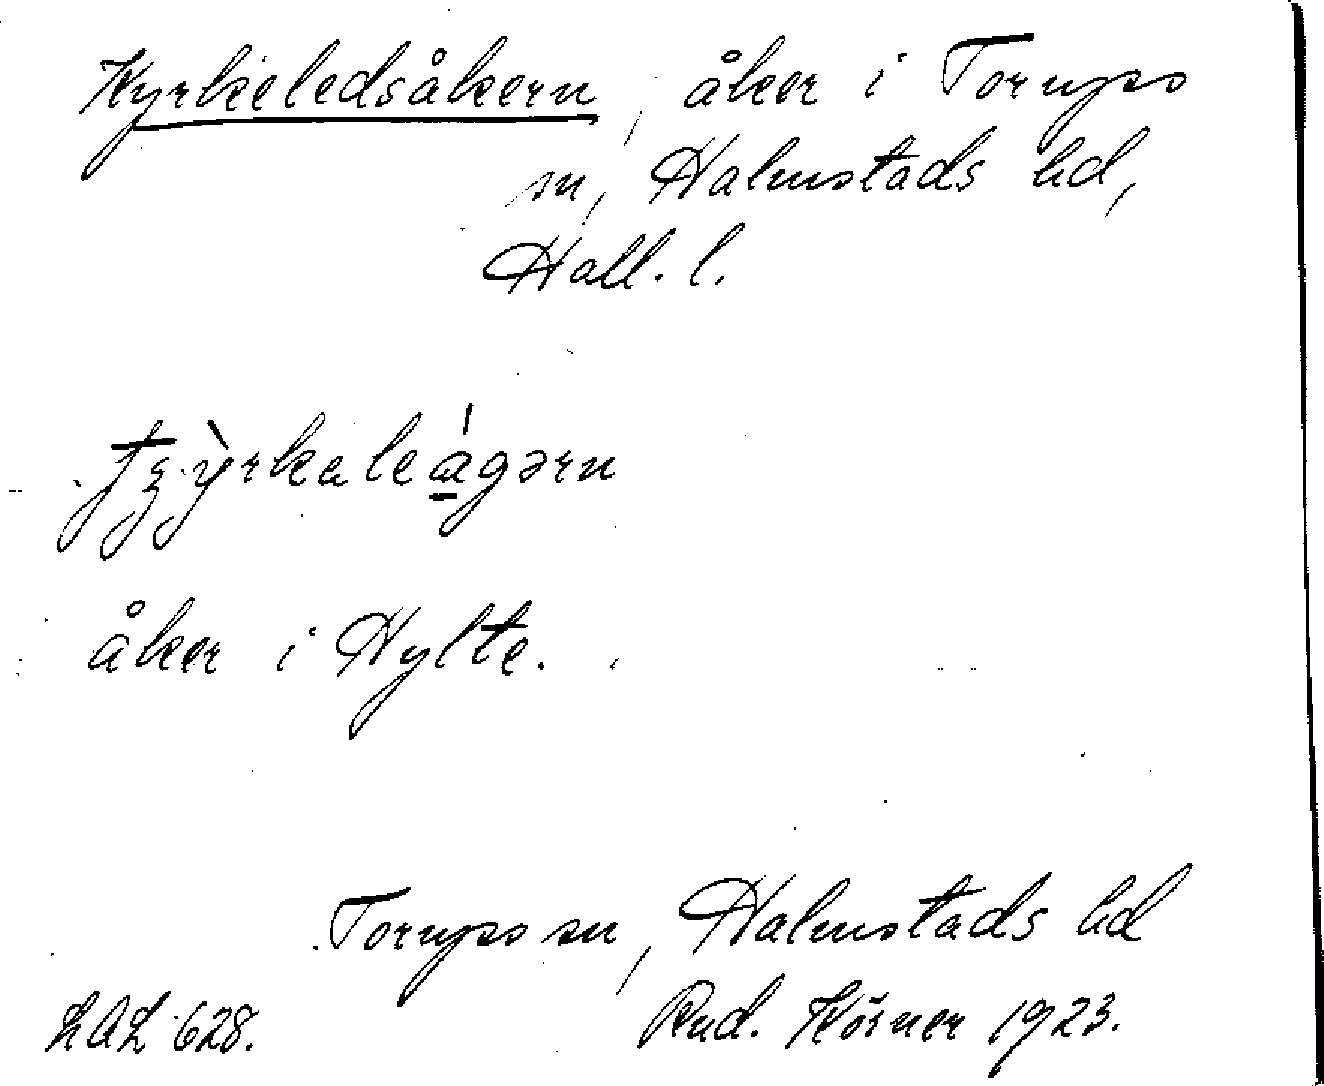 Kyrkeledsåkern, åker i Torups
sn, Halmstads hd,
Hall. l.
åker i Hylte.
Torups sn, Halmstads hd
LAL 628. Rud. Hösner 1923.